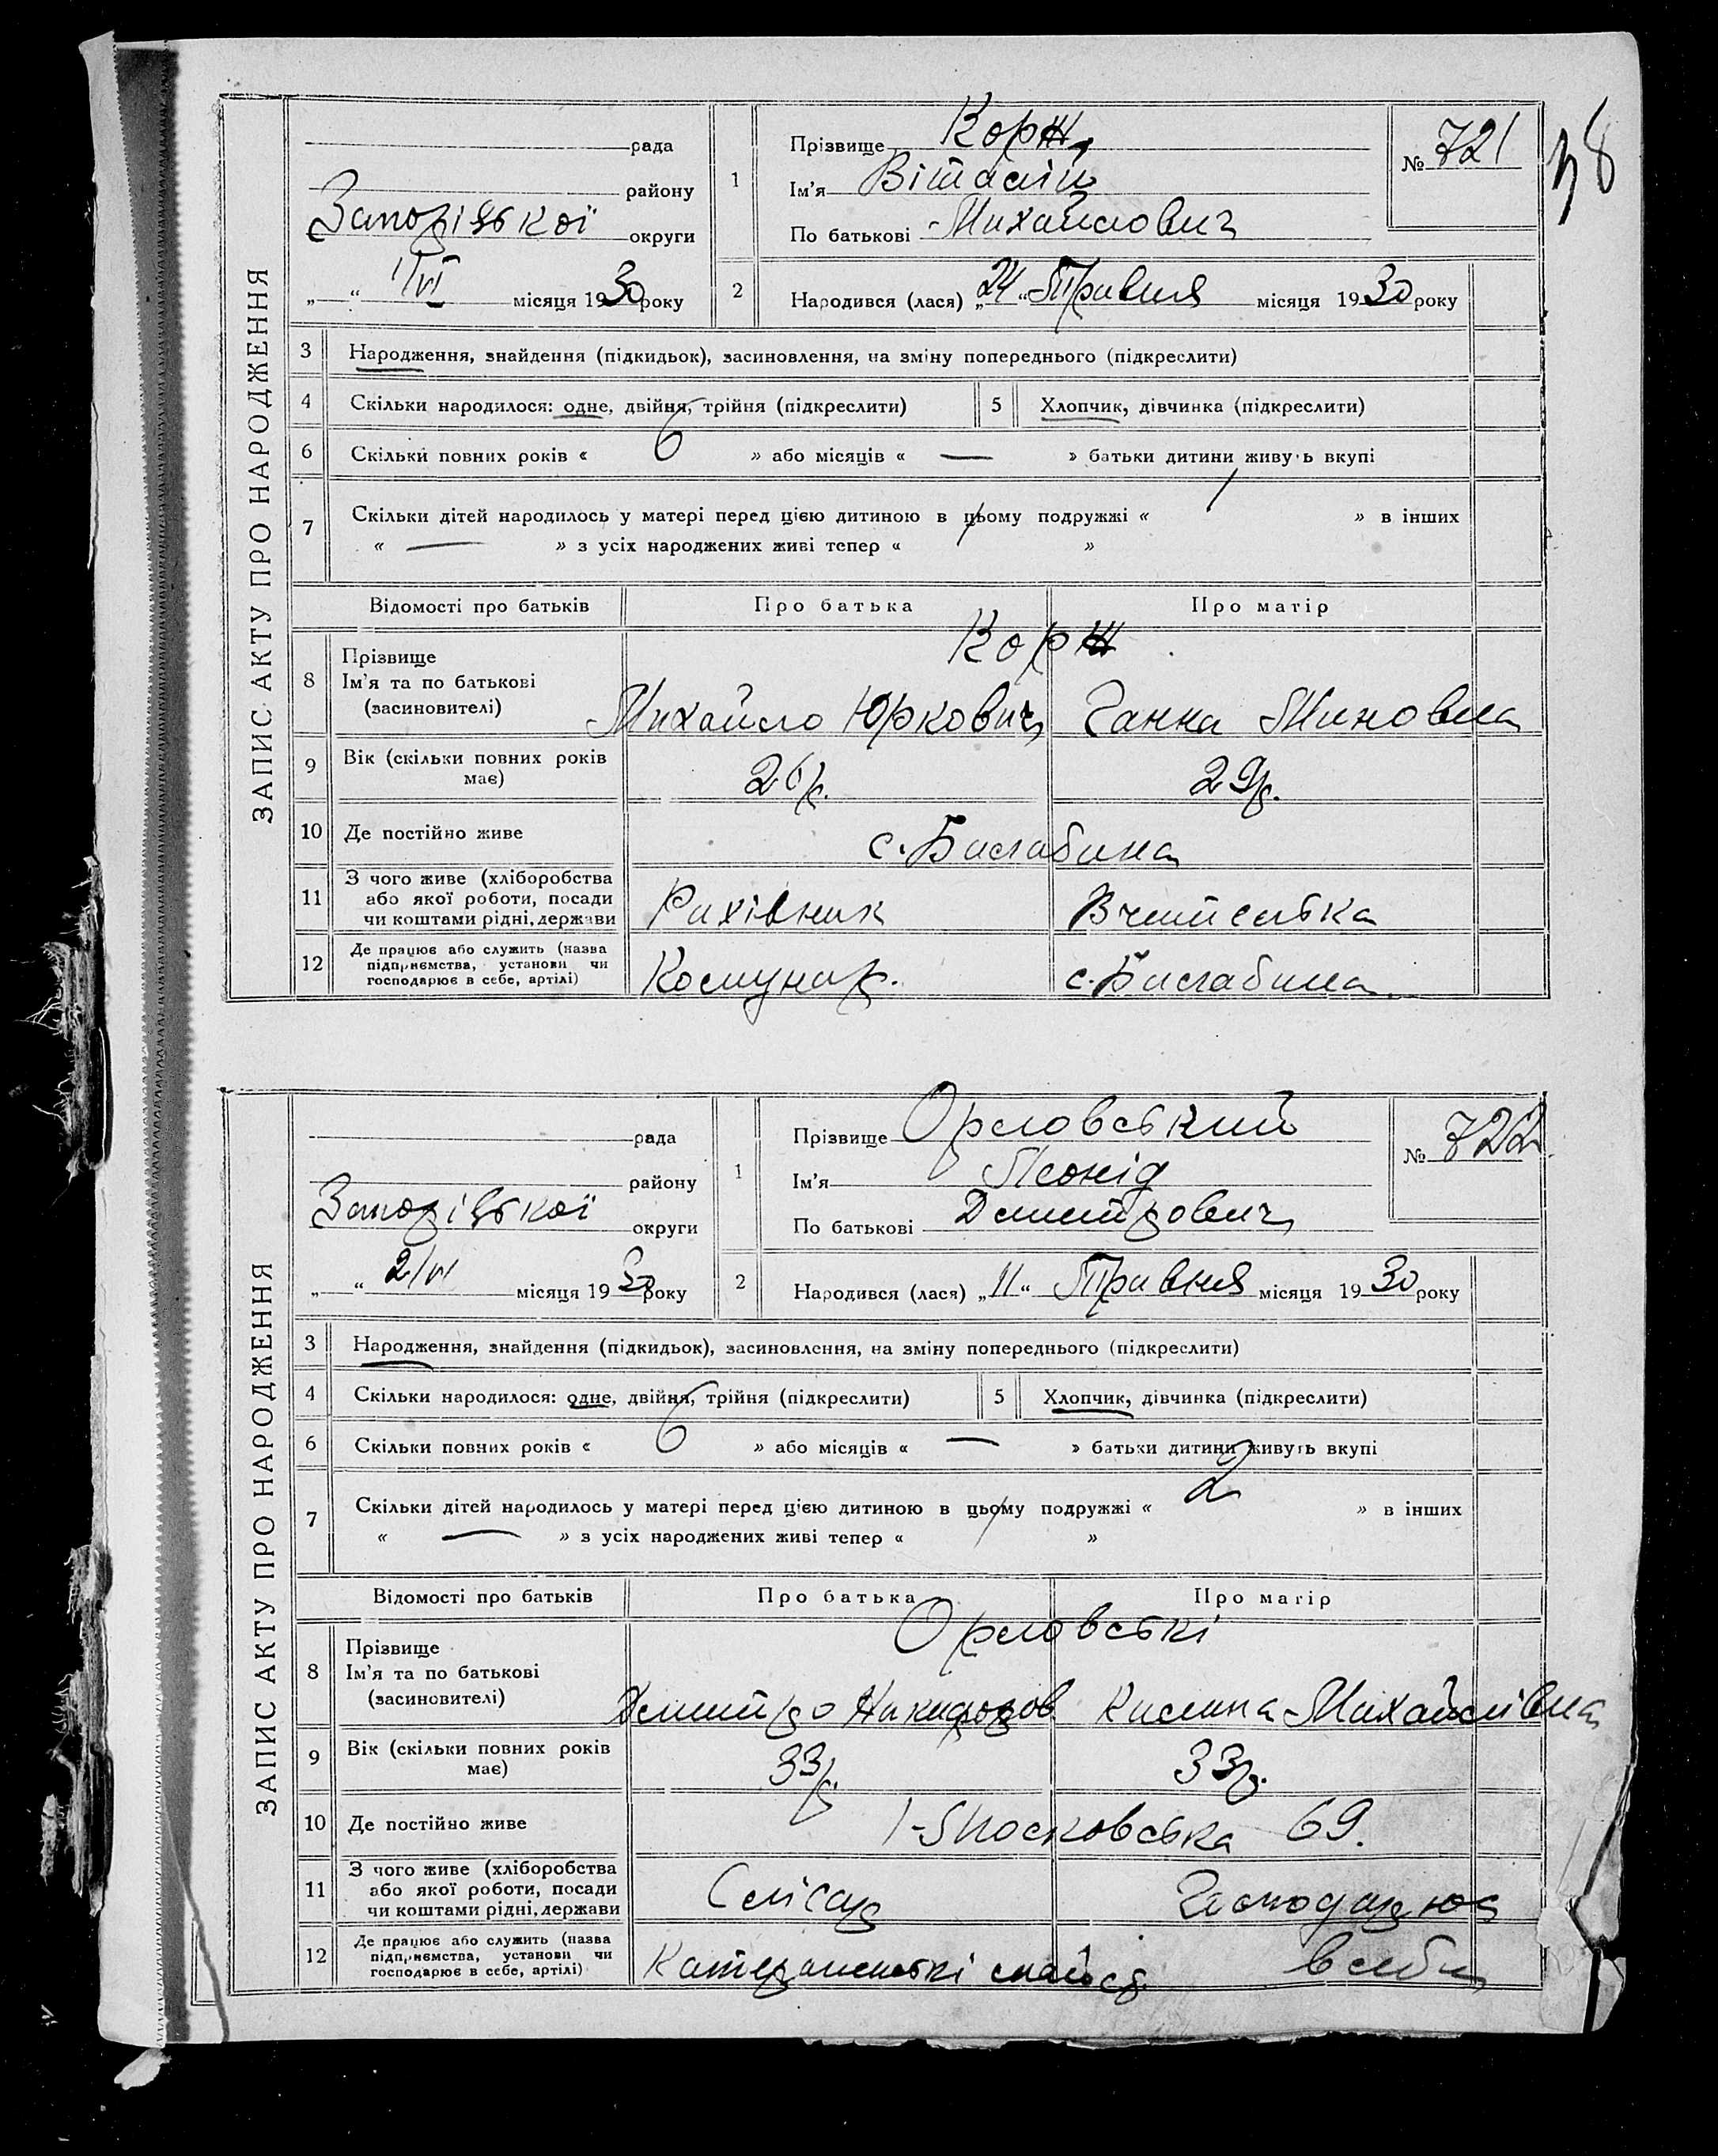 38
ЗАПИС АКТУ ПРО НАРОДЖЕННЯ
рада
району
Запорізької округи
„ “ 1/VI місяця 1930 року
1
Прізвище Корж
Ім'я Віталій
По батькові Михайлович
№ 721
2 Народився (лася) „24“ Травня місяця 1930 року
3 Народження, знайдення (підкидьок), засиновлення, на зміну попереднього (підкреслити)
4 Скільки народилося: одне, двійня, трійня (підкреслити) 5 Хлопчик, дівчинка (підкреслити)
6 Скільки повних років « 6 » або місяців « — » батьки дитини живуть вкупі
7 Скільки дітей народилось у матері перед цією дитиною в цьому подружжі « 1 » в інших
« — » з усіх народжених живі тепер « 1 »
Відомості про батьків Про батька Про матір
8 Прізвище
Ім'я та по батькові
(засиновителі)
Корж
Михайло Юркович Ганна Миновна
9 Вік (скільки повних років має) 26р. 29р.
10 Де постійно живе с.
11 З чого живе (хліборобства
або якої роботи, посади
чи коштами рідні, держави
Рахівник Вчителька
12 Де працює або служить (назва
підприємства, установи чи
господарює в себе, артілі)
Комунар. с.
ЗАПИС АКТУ ПРО НАРОДЖЕННЯ
рада
району
Запорізької округи
„ “ 2/VI місяця 1930 року
1
Прізвище Орловський
Ім'я Леонід
По батькові Дмитрович
№ 722
2 Народився (лася) „11“ Травня місяця 1930 року
3 Народження, знайдення (підкидьок), засиновлення, на зміну попереднього (підкреслити)
4 Скільки народилося: одне, двійня, трійня (підкреслити) 5 Хлопчик, дівчинка (підкреслити)
6 Скільки повних років « 6 » або місяців « — » батьки дитини живуть вкупі
7 Скільки дітей народилось у матері перед цією дитиною в цьому подружжі « 2 » в інших
« — » з усіх народжених живі тепер « 1 »
Відомості про батьків Про батька Про матір
8 Прізвище
Ім'я та по батькові
(засиновителі)
Орловські
Дмитро Никифоров Килина Михайлівна
9 Вік (скільки повних років має) 33р. 33р.
10 Де постійно живе 1-Московська 69.
11 З чого живе (хліборобства
або якої роботи, посади
чи коштами рідні, держави
Слісар Господарює
12 Де працює або служить (назва
підприємства, установи чи
господарює в себе, артілі)
майст. в себе